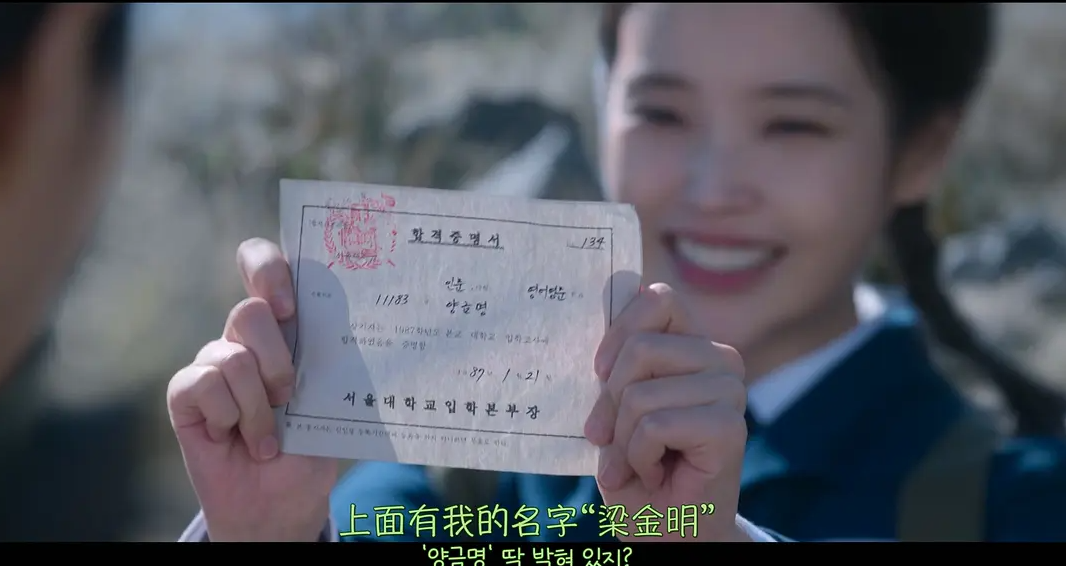 합격증명서
134
인문
영어영문
11183
양금명
상기자는 1987학년도 본교 대학교 입학고사에
합격하였음을 증명함
1987 1 21
서울대학교입학본부장
上面有我的名字“梁金明”
'양금명' 딱 박혀 있지?